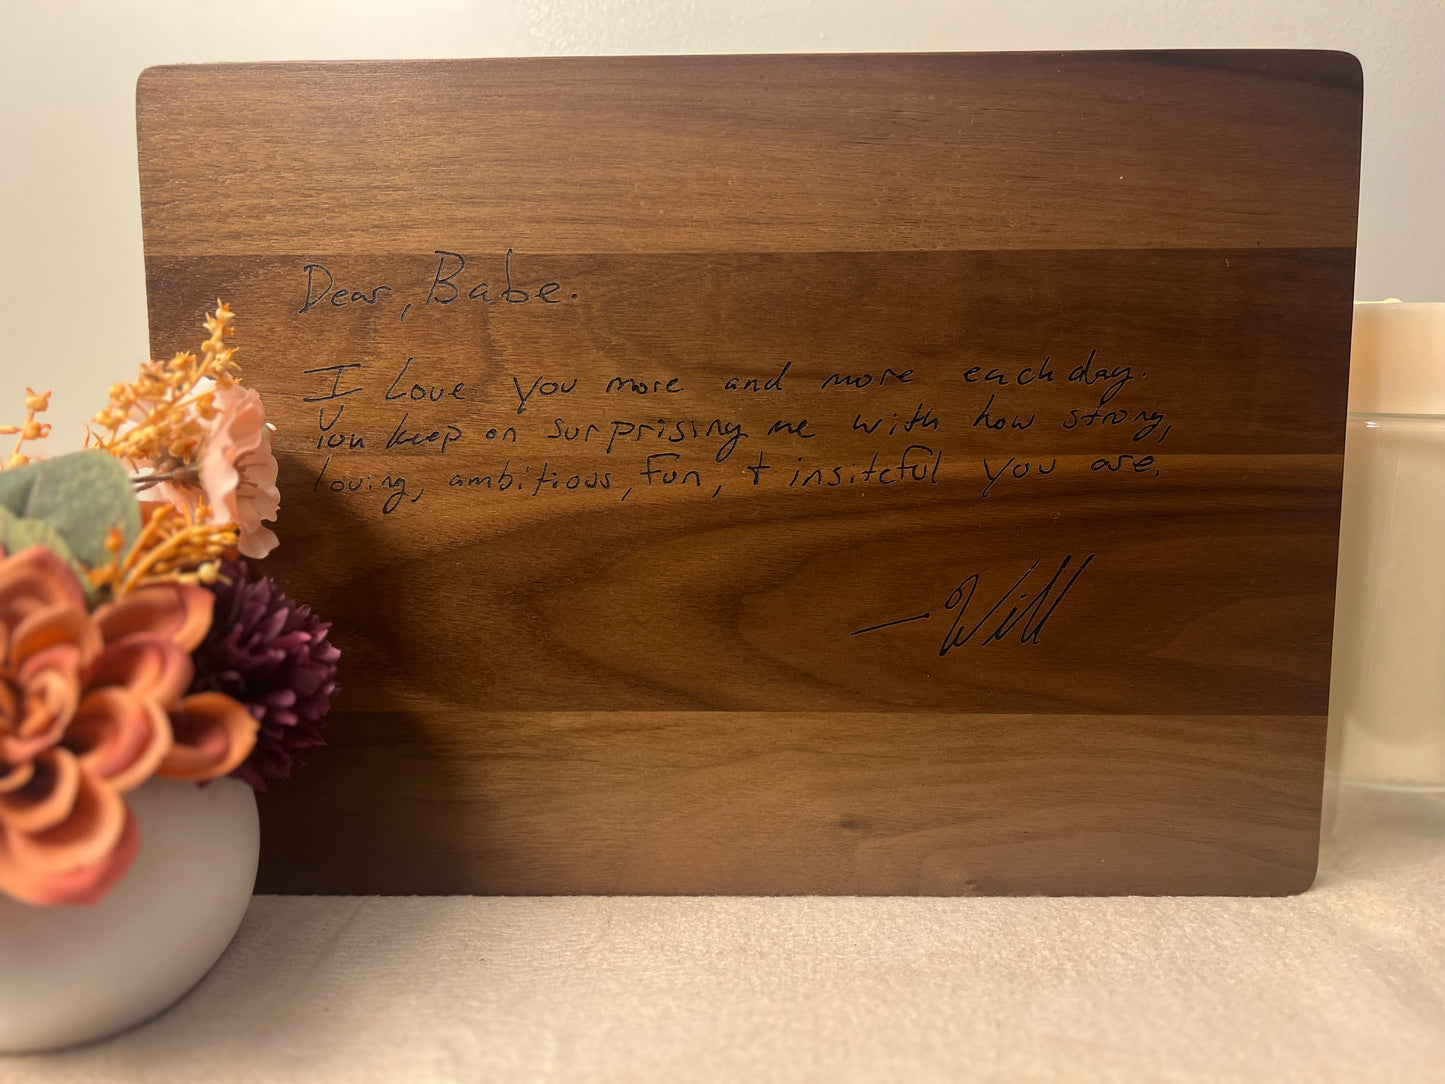 Dear, Babe.
I Love you more and more each day.
You keep on surprising me with how strong,
loving, ambitious, fun, + insiteful you are.
— Will